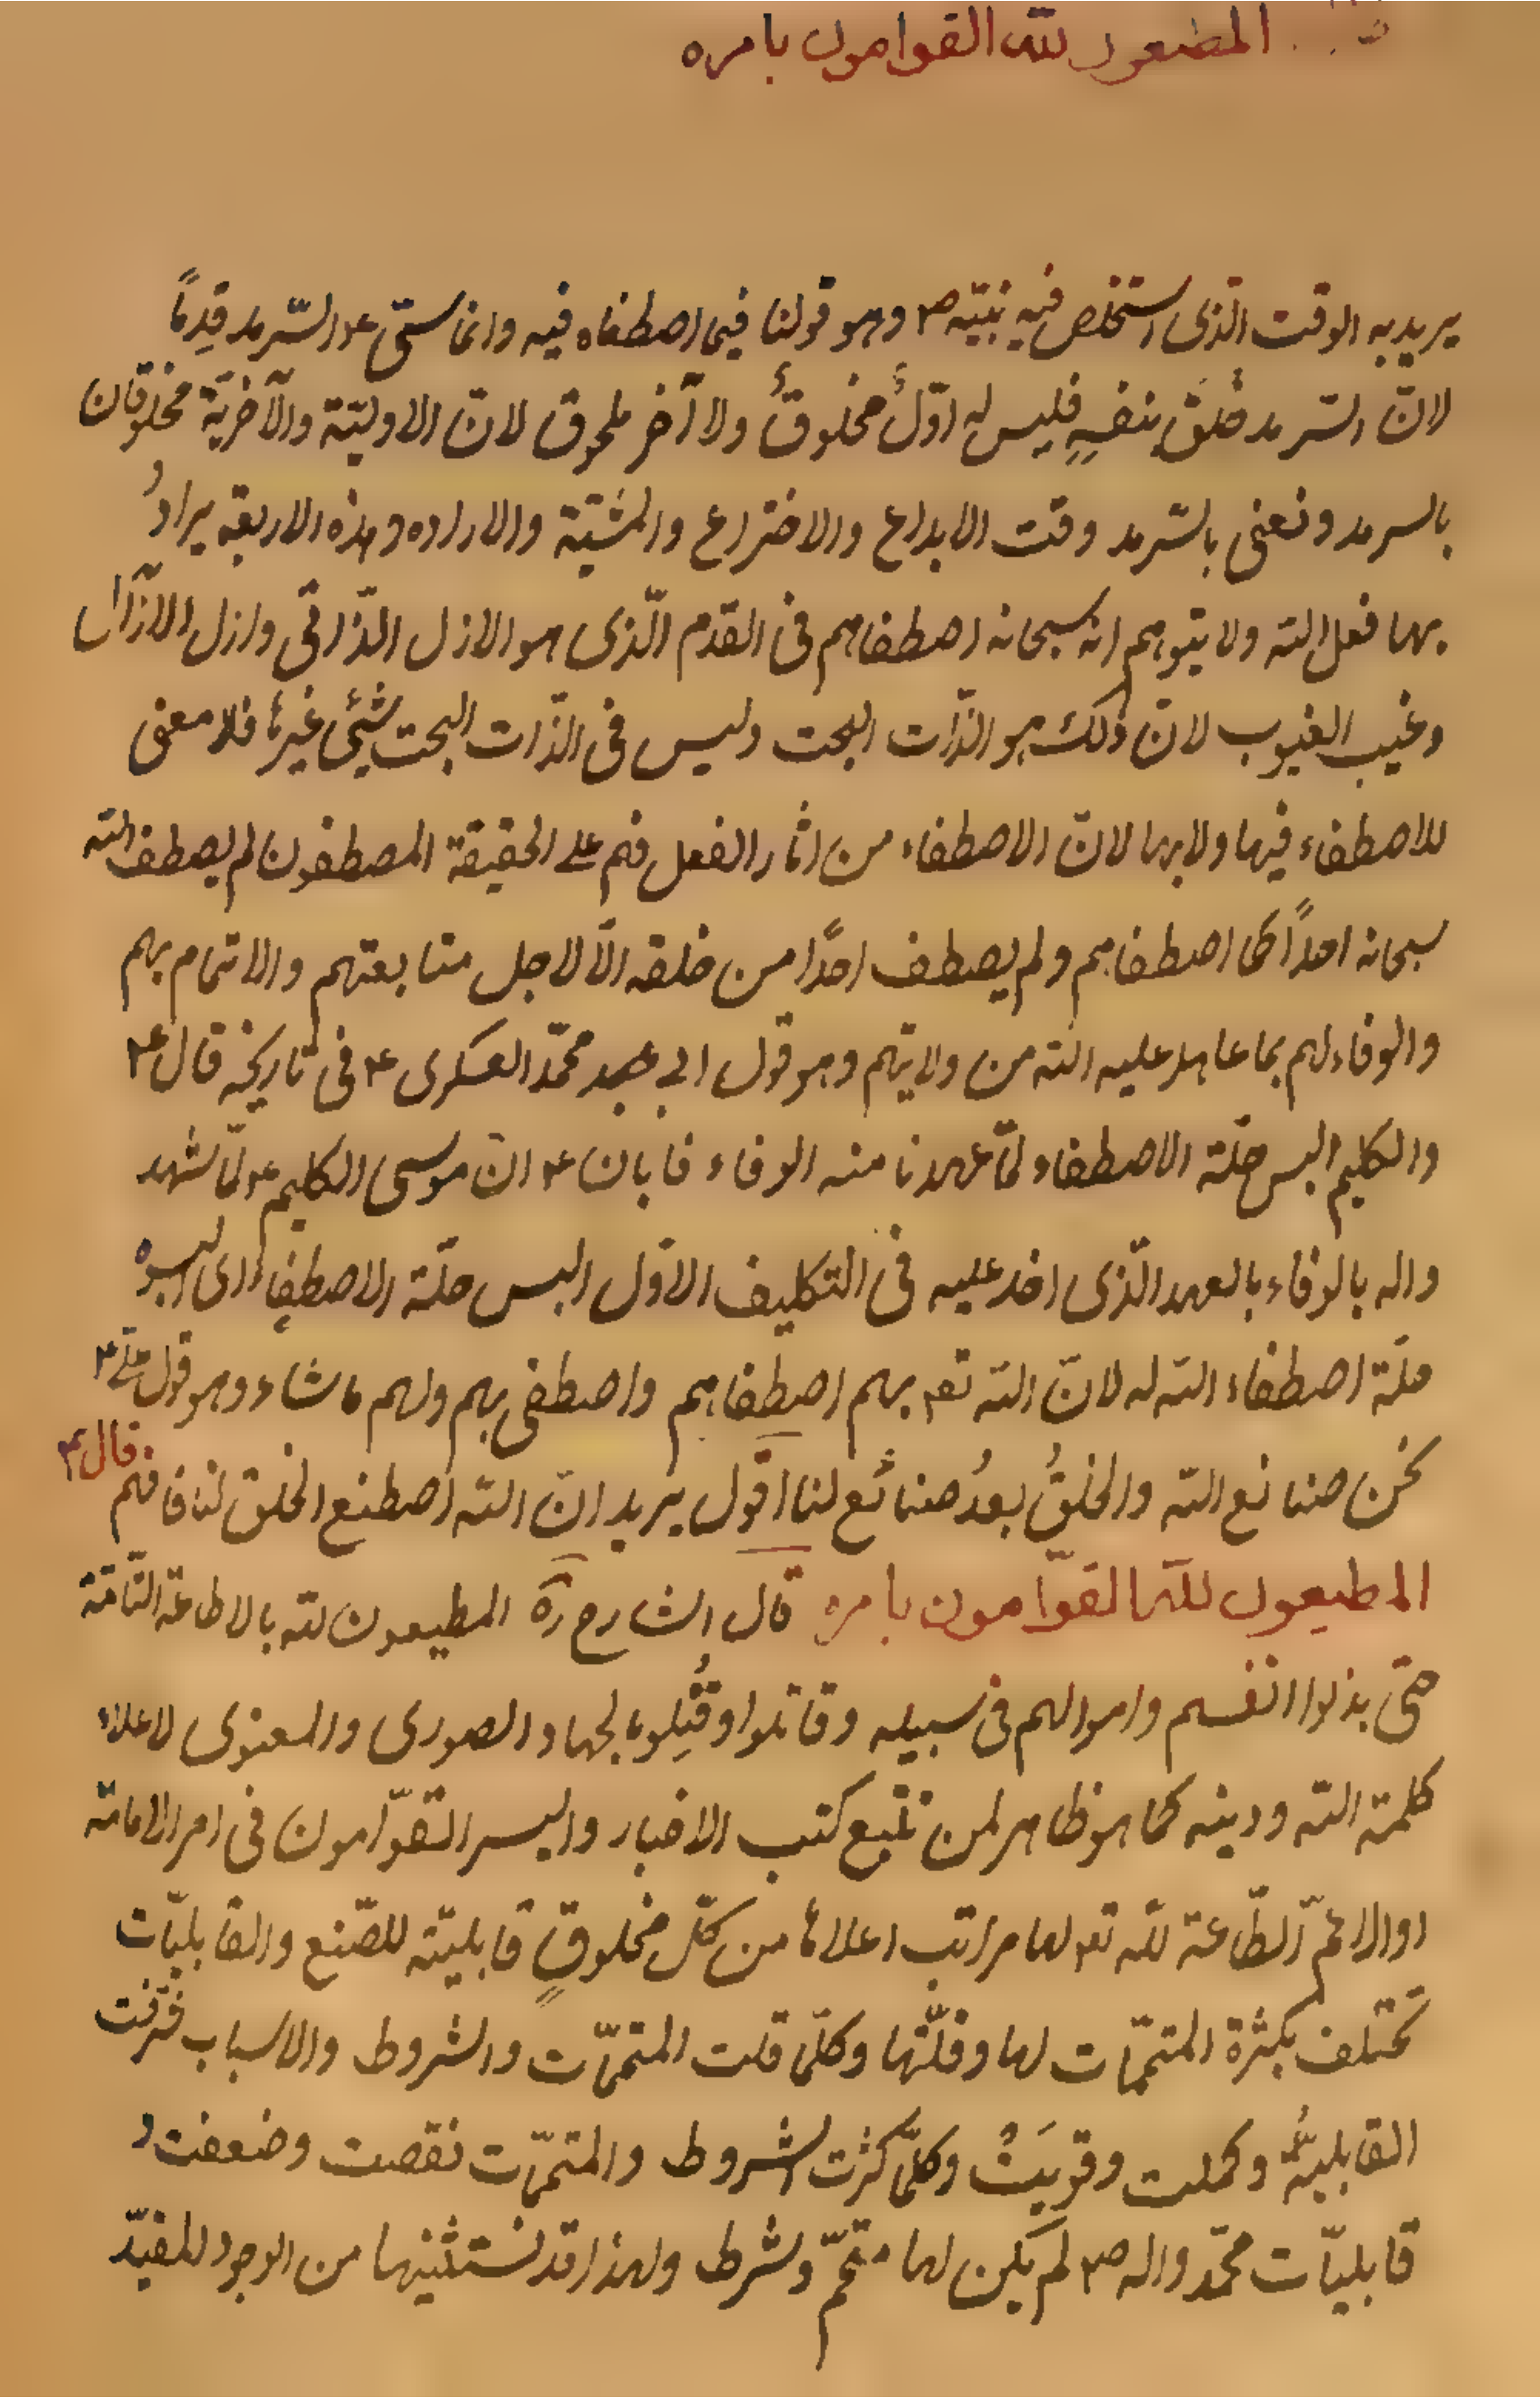 المطيعون لله القوامون بامره
يريد به الوقت الّذى استخلص فيه نبيّه ص۴ وهو قولنا فيما اصطفاه فيه وانما سمّى ۴ السّرمد قِدمًا
لانّ السّرمد خُلقَ بنفسِهِ فليس له اوّلٌ مخلوقٌ ولا آخر ملحوق لانّ الاوليّة والآخريّة مخلوقان
بالسرمد ونعنى بالسّرمد وقت الابداع والاختراع والمشيّة والاراده وهذه الاربعة يرادُ
بها فعل الله ولا يتوهم انه سبحانه اصطفاهم فى القدم الّذى هو الازل الذّاتى وازل الآزال
وغيب الغيوب لانّ ذلك هو الذّات البحت وليس فى الذّات البحت شئى غيرها فلا معنى
للاصطفاء فيها ولا بها لانّ الاصطفاء من اثار الفعل فهم على الحقيقة المصطفون لم يصطف الله
سبحانه احدًا كما اصطفاهم ولم يصطف احدًا من خلقه الّا لاجل متابعتهم والائتمام بهم
والوفاء لهم بما عاهد عليه الله من ولايتهم وهو قول ابى محمّد العسكرى ۴ فى تاريخه قال ۴
والكليم البس حلّة الاصطفاء لمّا عهدنا منه الوفاء فابان ۴ انّ موسى الكليم ۴ لمّا شهد
واله بالوفاء بالعهد الّذى اخذ عليه فى التكليف الاوّل البس حلّة الاصطفاء اى البسوه
حلّة اصطفاء الله له لانّ الله تع۴ بهم اصطفاهم واصطفى بهم ولهم ما شاء وهو قول علىّ ۴
نحن صنائع الله والخلقُ بعدُ صنائع لنا اقول يريد انّ الله اصطنع الخلق لنا فافهم قال ۴
المطيعون لله القوّامون بامره قال الشارح ره المطيعون لله بالاطاعة التّامّة
حتى بذلوا انفسهم واموالهم فى سبيله وقاتلوا وقُتِلوا بالجهاد الصورى والمعنوى لاعلاء
كلمة الله ودينه كما هو ظاهر لمن تتبع كتب الاخبار والسير القوّامون فى امر الامامة
او الاعم الطّاعة لله تع۴ لها مراتب اعلاها من كلّ مخلوقٍ قابليّته للصّنع والقابليّات
تختلف بكثرة المتمّمات لها وقلّتها وكلّما قلت المتمّمات والشروط والاسباب قربت
القابليةُ وكملت وقويَتْ وكلّما كثرت الشروط والمتمّمات نقصت وضعفت و
قابليّات محمّد واله ص۴ لم يكن لها متمّم وشرط ولهذا قد نستثنيها من الوجود المقيّد